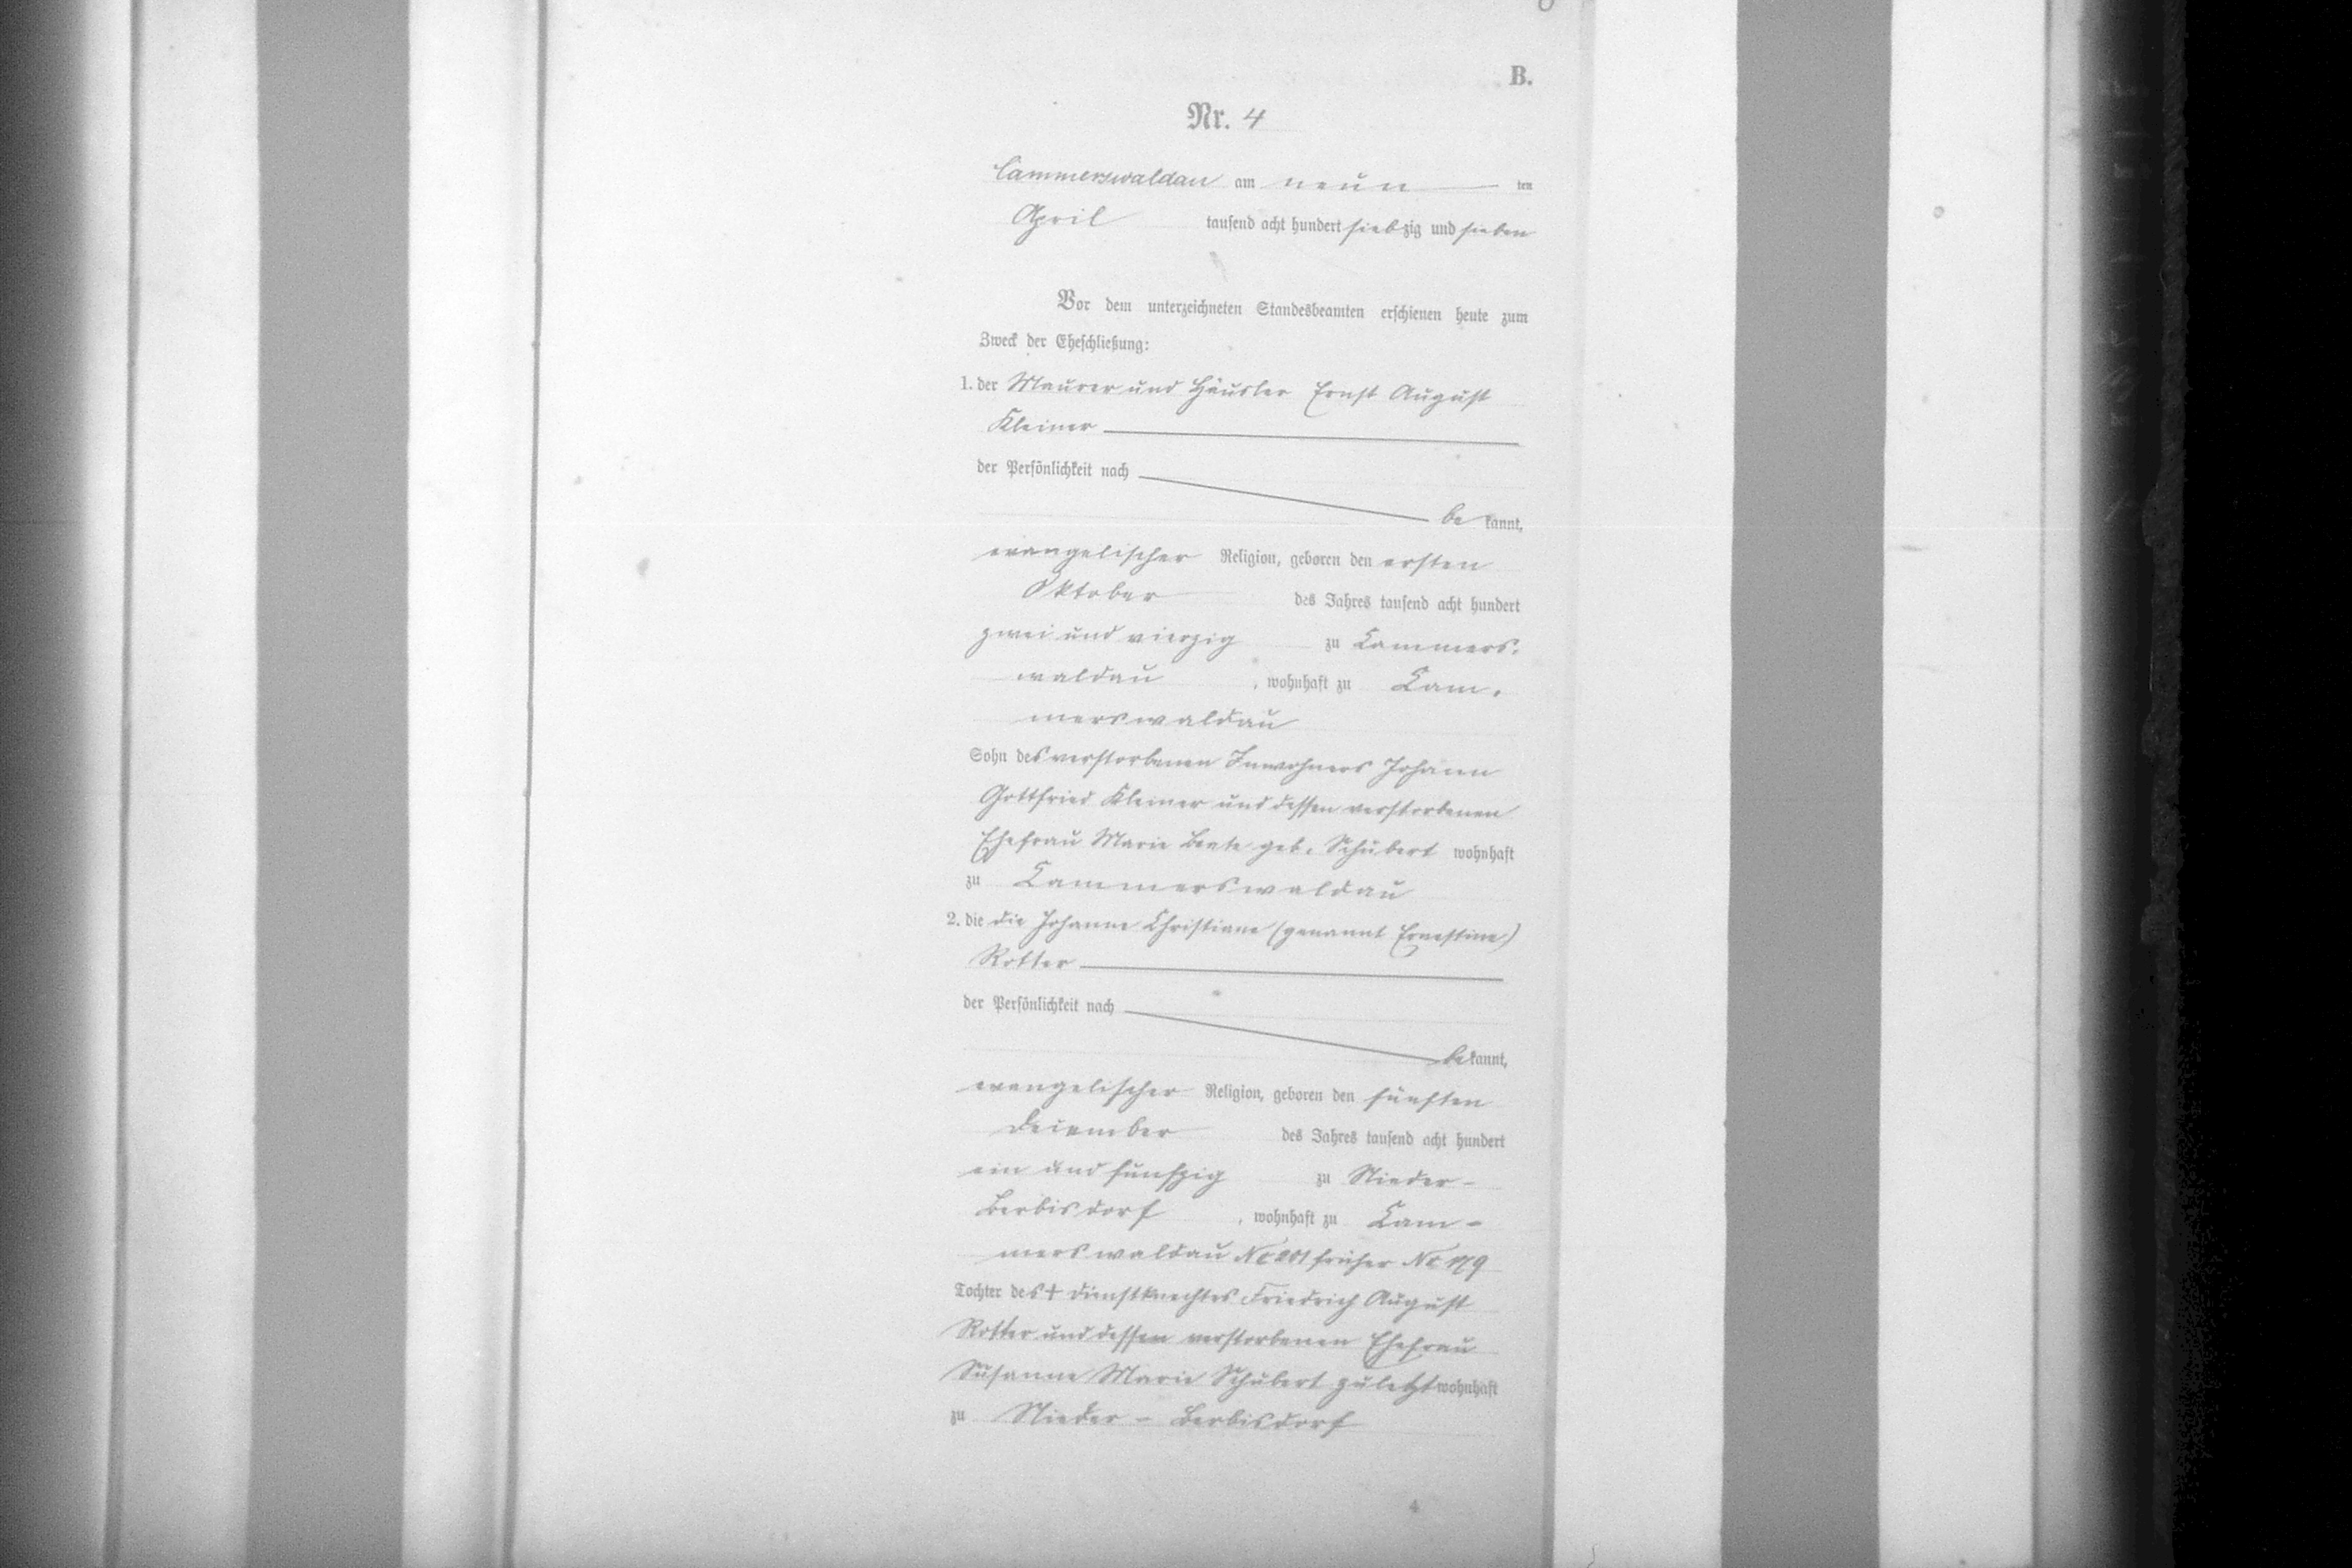 B.
Nr. 4
Cammerswaldau am neun ten
April tausend acht hundert siebzig und sieben
Vor dem unterzeichneten Standesbeamten erschienen heute zum
Zweck der Eheschließung:
1. der Maurer und Häusler Ernst August
Kleiner
der Persönlichkeit nach
be kannt,
evangelischer Religion, geboren den ersten
Oktober des Jahres tausend acht hundert
zwei und vierzig zu Cammers-
waldau, wohnhaft zu Cam-
merswaldau
Sohn des verstorbenen Inwohners Johann
Gottfried Kleiner und dessen verstorbenen
Ehefrau Marie Beate geb. Schubert wohnhaft
zu Cammerswaldau
2. die die Johanne Christiane (genannt Ernestine)
Rotter
der Persönlichkeit nach
bekannt,
evangelischer Religion, geboren den fünften
December des Jahres tausend acht hundert
ein und fünfzig zu Nieder-
Berbisdorf, wohnhaft zu Cam-
merswaldau No 201 früher No 179
Tochter des † Dienstknechtes Friedrich August
Rotter und dessen verstorbenen Ehefrau
Susanne Marie Schubert zuletzt wohnhaft
zu Nieder-Berbisdorf
4